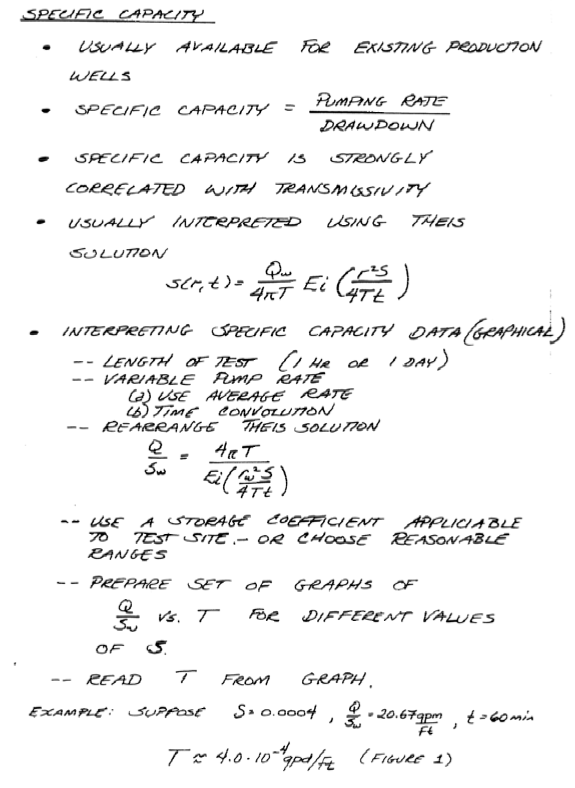 SPECIFIC CAPACITY
• USUALLY AVAILABLE FOR EXISTING PRODUCTION
WELLS
• SPECIFIC CAPACITY = PUMPING RATE / DRAWDOWN
• SPECIFIC CAPACITY IS STRONGLY
CORRELATED WITH TRANSMISSIVITY
• USUALLY INTERPRETED USING THEIS
SOLUTION
s(r,t) = Qw / 4πT Ei (r²S / 4Tt)
• INTERPRETING SPECIFIC CAPACITY DATA (GRAPHICAL)
-- LENGTH OF TEST (1 HR OR 1 DAY)
-- VARIABLE PUMP RATE
(a) USE AVERAGE RATE
(b) TIME CONVOLUTION
-- REARRANGE THEIS SOLUTION
Q / Sw = 4πT / Ei (rw²S / 4Tt)
-- USE A STORAGE COEFFICIENT APPLICIABLE
TO TEST SITE - OR CHOOSE REASONABLE
RANGES
-- PREPARE SET OF GRAPHS OF
Q / Sw VS. T FOR DIFFERENT VALUES
OF S.
-- READ T FROM GRAPH.
EXAMPLE: SUPPOSE S = 0.0004, Q / Sw = 20.67 gpm / Ft, t = 60 min
T ≈ 4.0 · 10⁻⁴ gpd/ft (FIGURE 1)